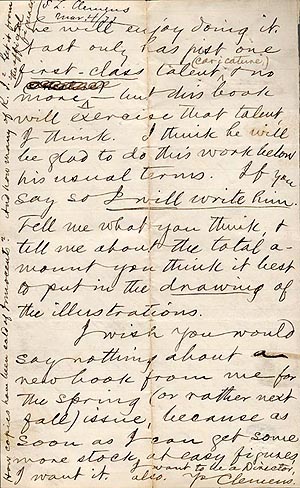 S. L. Clemens
Mar. 4/73
he will enjoy doing it.
Nast only has just one
(caricature,)
first-class talent, & no
more — but this book
will exercise that talent
I think. I think he will
be glad to do this work below
his usual terms. If you
say so I will write him.
Tell me what you think, &
tell me about the total a-
mount you think it best
to put in the drawing of
the illustrations.
I wish you would
say nothing about a
new book from me for
the spring (or rather next
fall) issue, because as
soon as I can get some
more stock, at easy figures
I want it. I want to be a Director,
also. Yr Clemens.
How copies have been sold of Innocents? And how many of R. I.? Get it from
the official